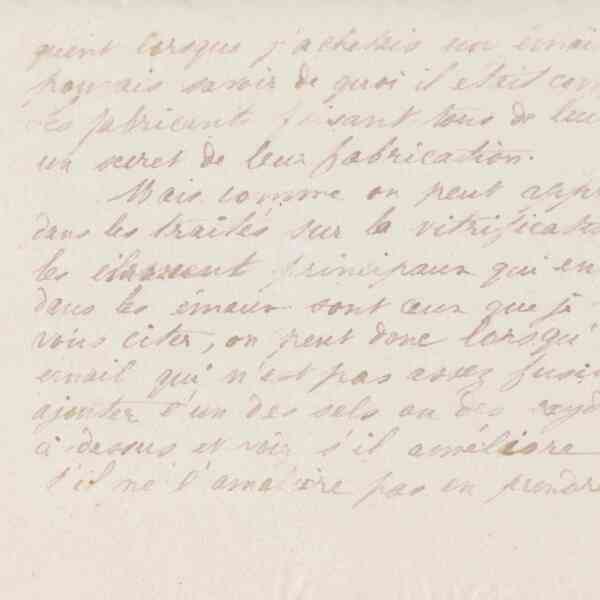 quent lorsque j'achetais un émai
pouvais savoir de quoi il etait com
les fabricants faisant tous de leu
un secret de leur fabrication.
Mais comme on peut appr
dans les traités sur la vitrificati
les élément principaux qui en
dans les émaux sont ceux que je
vous citer, on peut donc lorsqu'
email qui n'est pas assez fusi
ajouter l'un des sels ou des oxyd
à dessus et voir s'il améliore
s'il ne l'amaliore pas en prendre